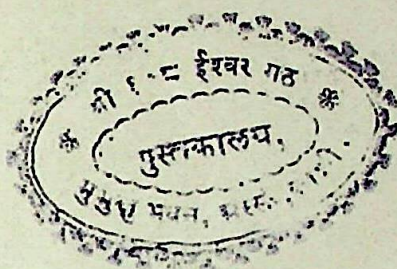 श्री १०८ ईश्वर मठ
पुस्तकालय,
मुमुक्षु भवन,